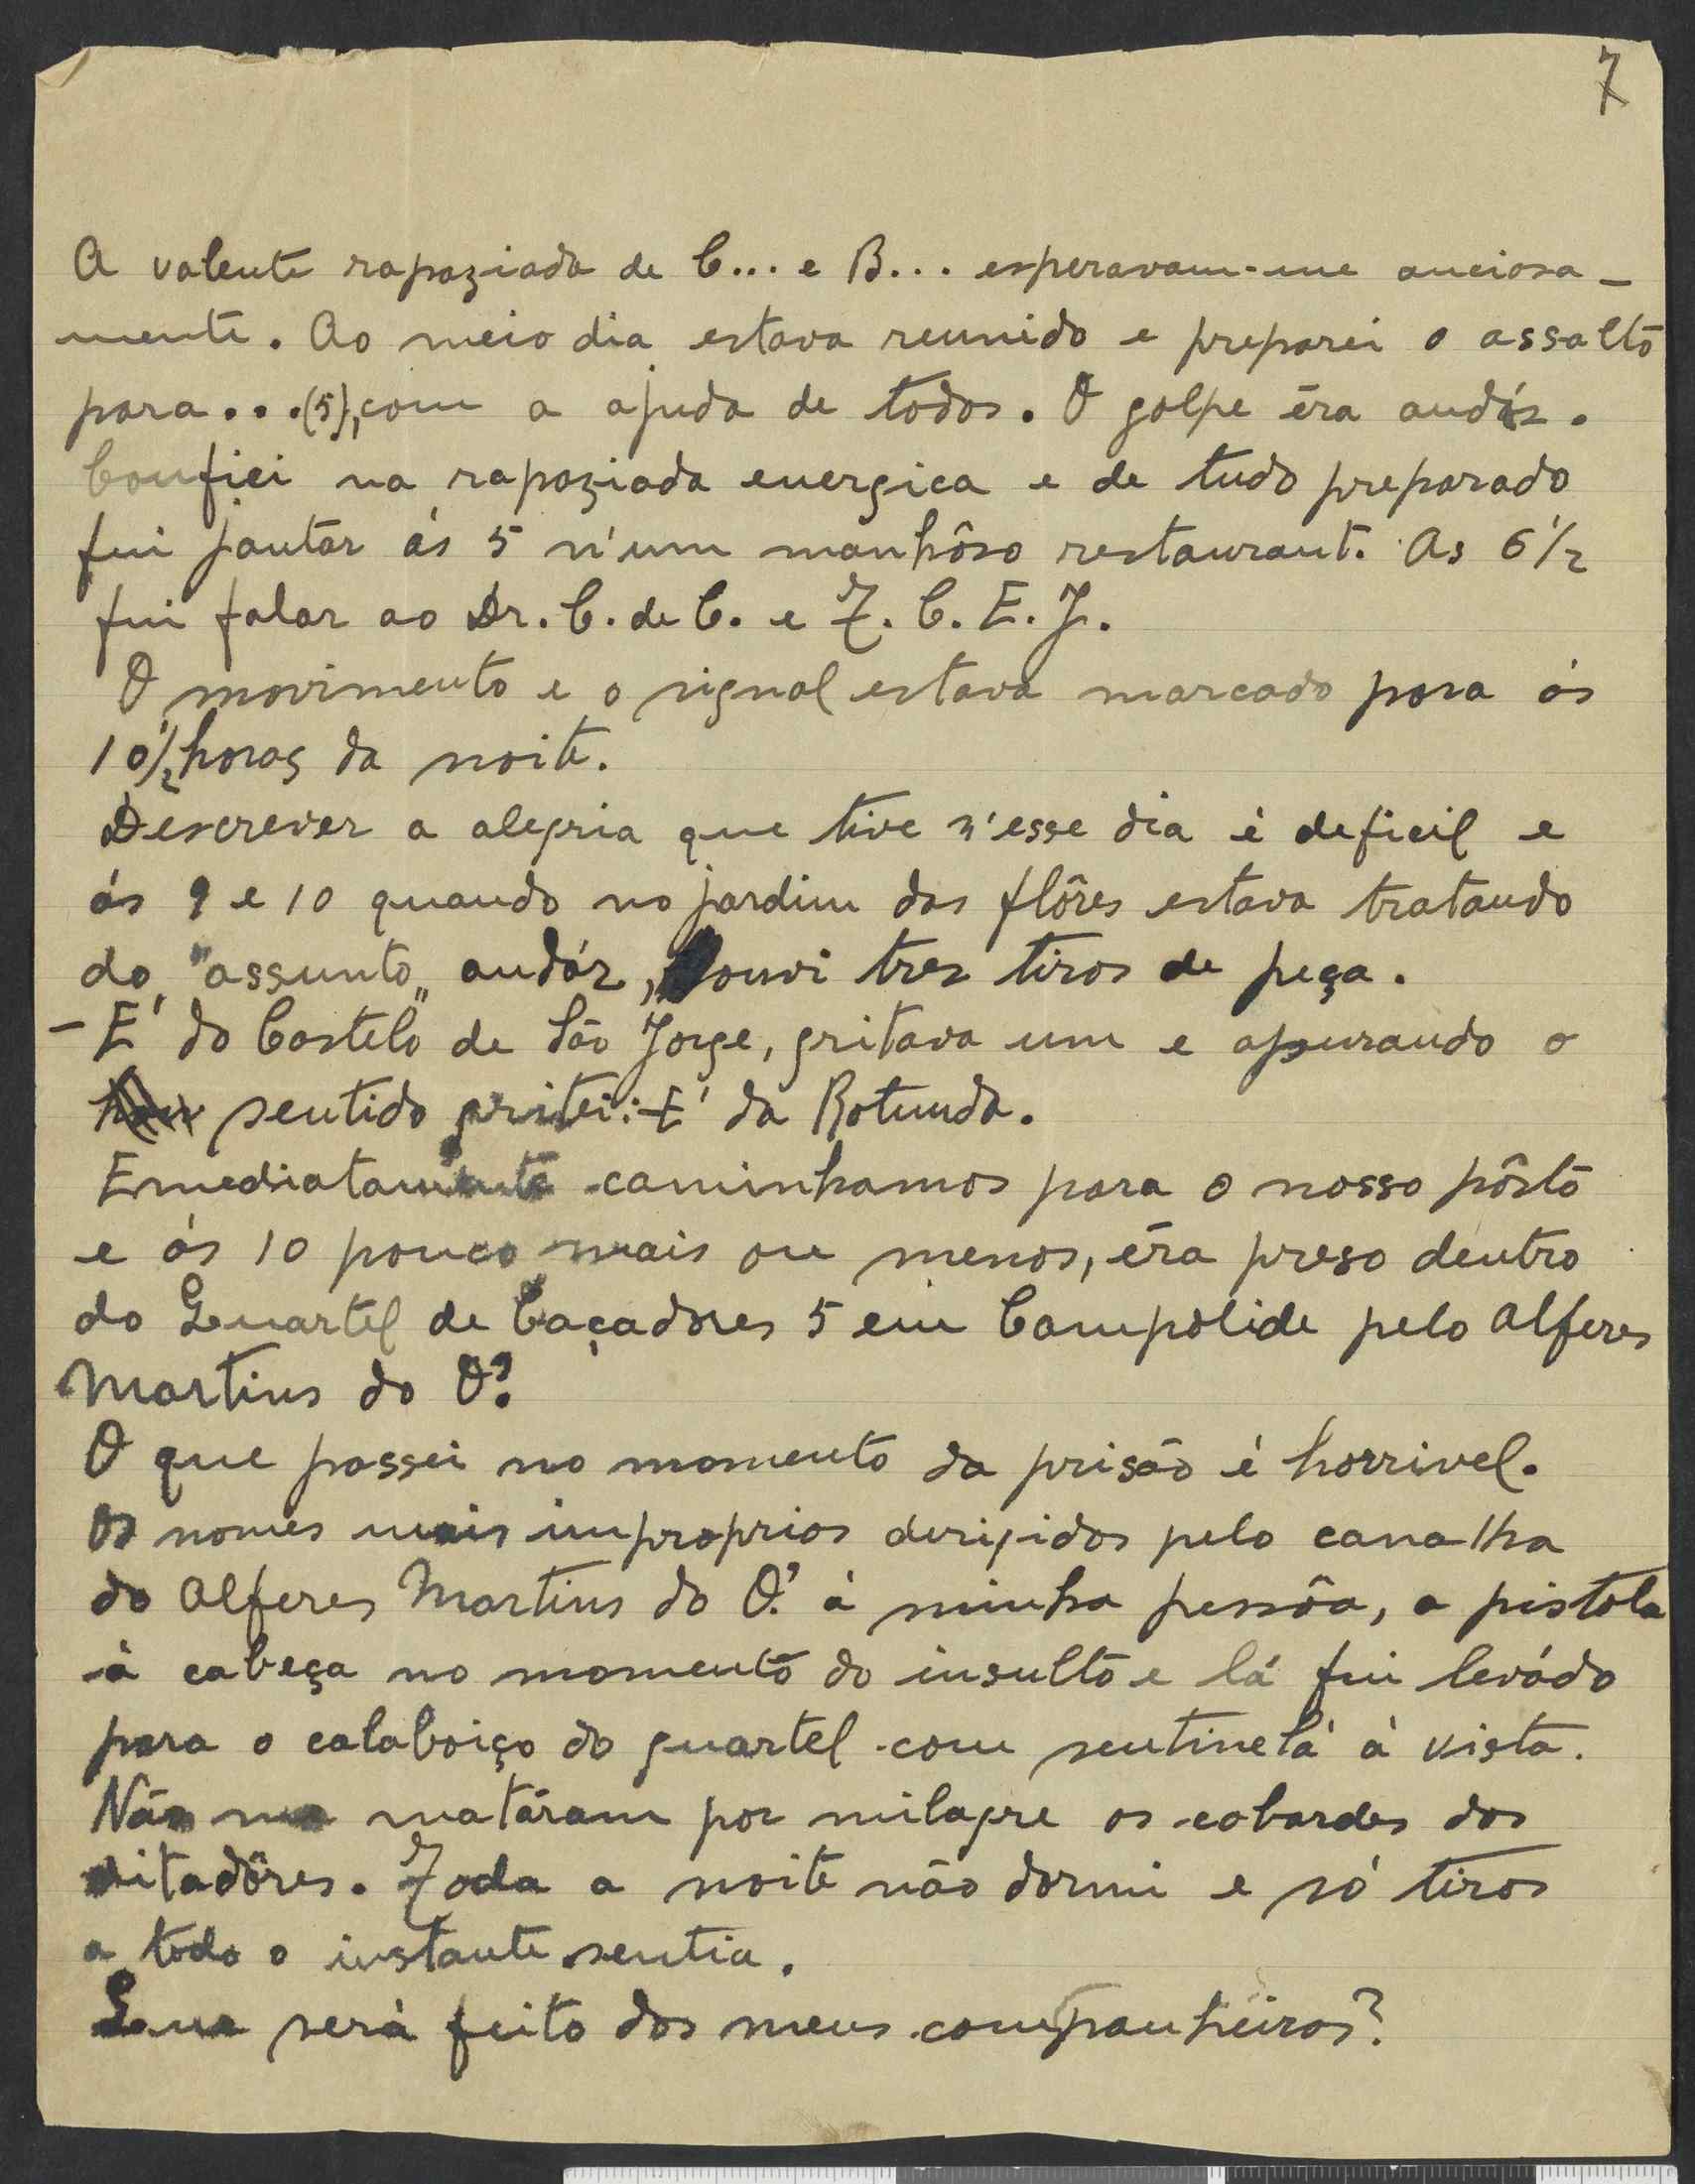 7
A valente rapaziada de C... e B... esperavam-me anciosa-
mente. Ao meio dia estava reunido e preparei o assalto
para...(5), com a ajuda de todos. O golpe éra audáz.
Confiei na rapaziada energica e de tudo preparado
fui jantar ás 5 n'um manhôso restaurant. As 6 1/2
fui falar ao Dr. C. de C. e T. C. E. J.
O movimento e o signal estava marcado para ás
10 1/2 horas da noite.
Descrever a alegria que tive n'esse dia é deficil e
ás 9 e 10 quando no jardim das flôres estava tratando
do "assunto" audáz, ouvi tres tiros de peça.
- E' do Castelo de São Jorge, gritava um e apurando o
sentido gritei: - E' da Rotunda.
Emediatamente caminhamos para o nosso pôsto
e ás 10 pouco mais ou menos, éra preso dentro
do Quartel de Caçadores 5 em Campolide pelo Alferes
Martins do O?
O que passei no momento da prisão é horrivel.
Os nomes mais improprios derigidos pelo canalha
do Alferes Martins do O.' á minha pessôa, a pistola
á cabeça no momento do insulto e lá fui levádo
para o calaboiço do quartel com sentinela á vista.
Não me matáram por milagre os cobardes dos
ditadôres. Toda a noite não dormi e só tiros
a todo o instante sentia.
Que será feito dos meus companheiros?